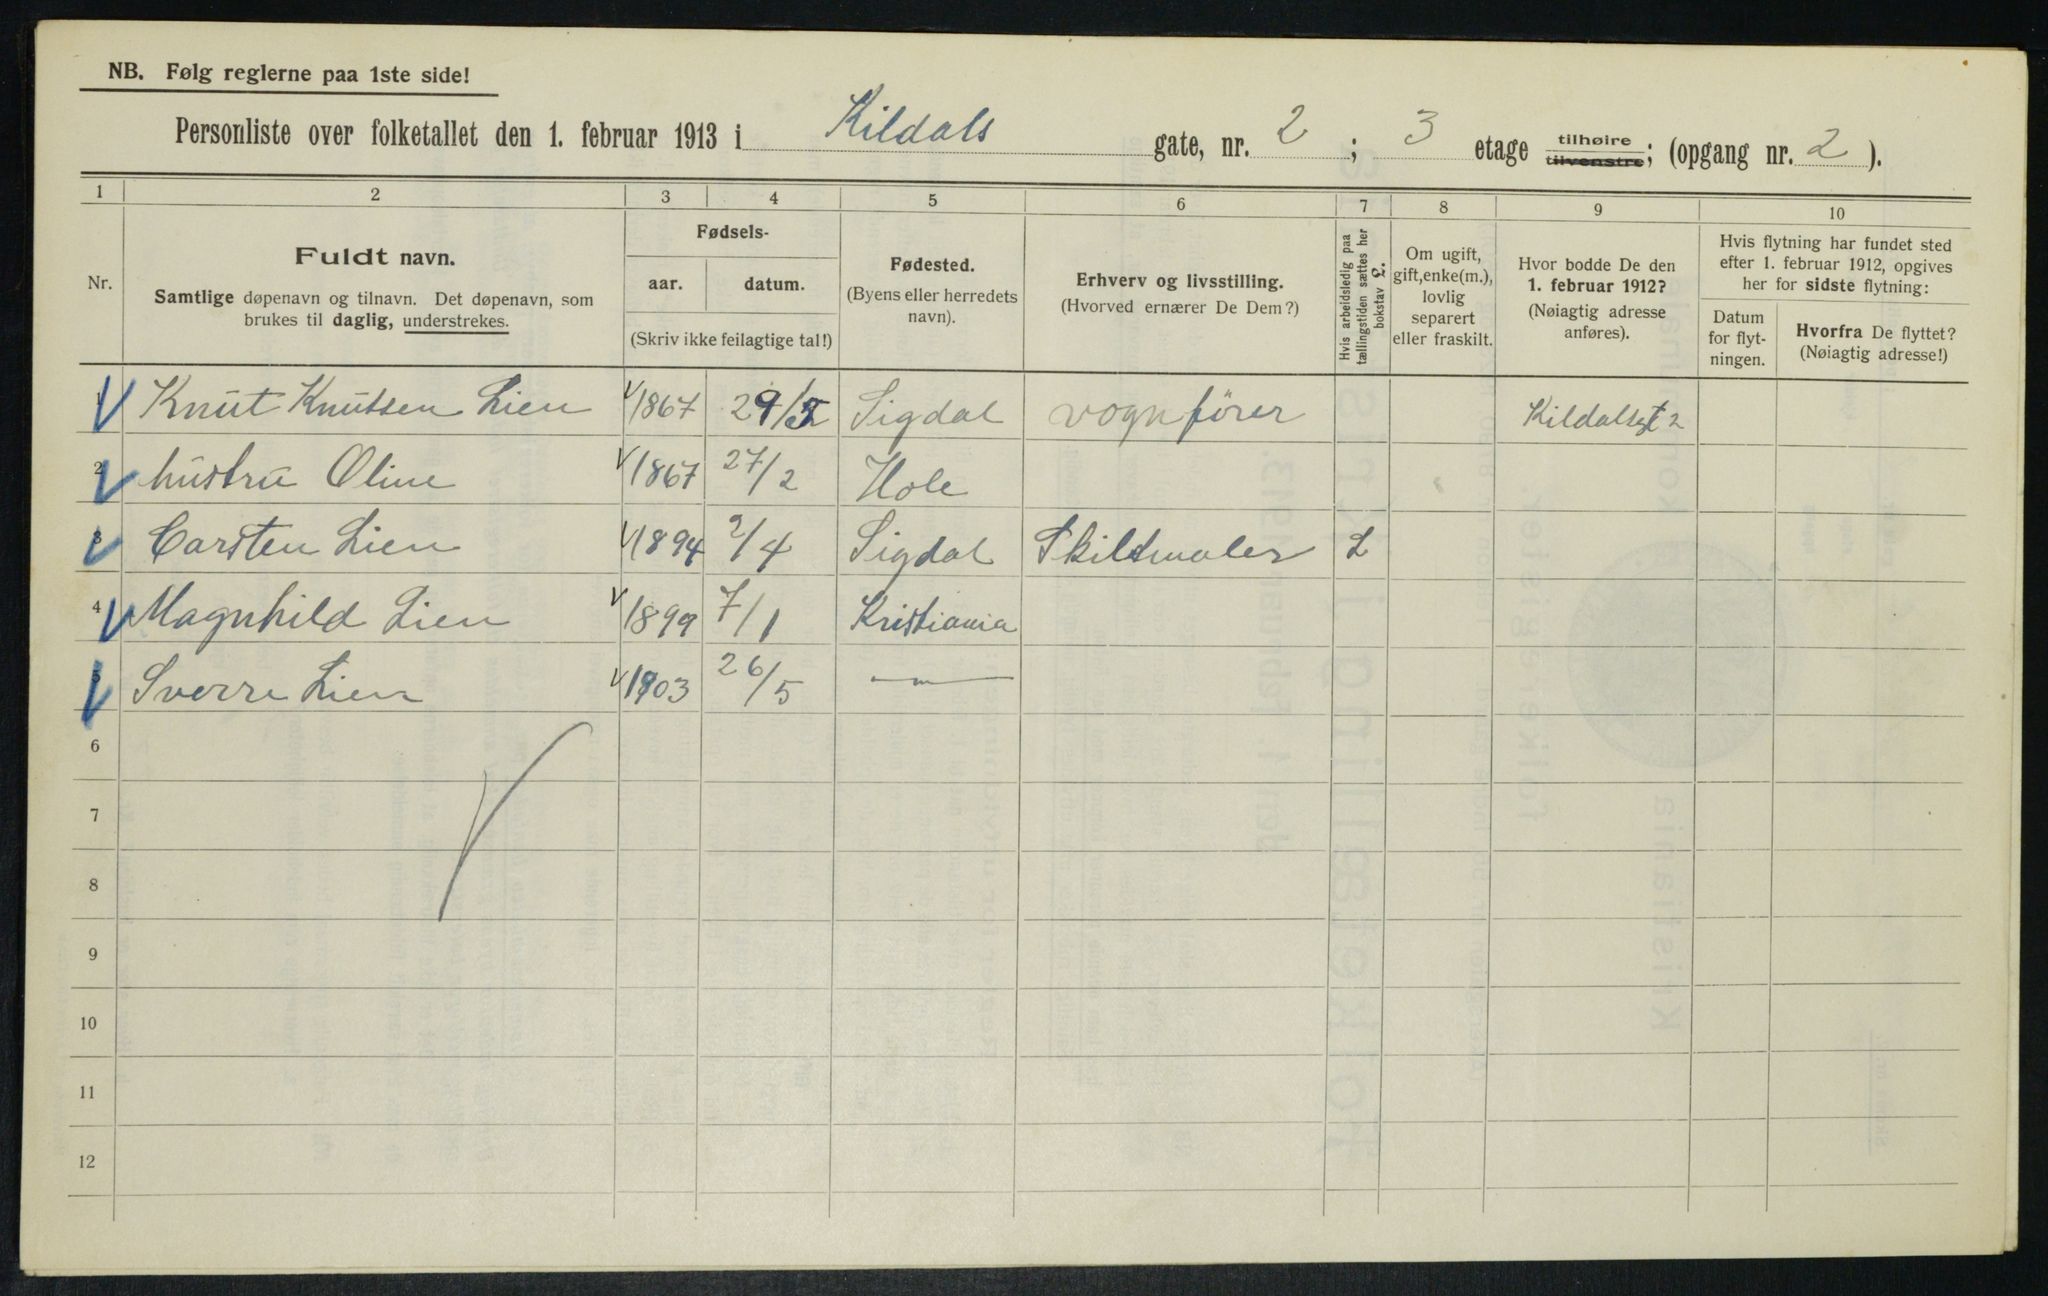 NB. Følg reglerne paa 1ste side!
Personliste over folketallet den 1. februar 1913 i Kildals gate, nr. 2 ; 3 etage tilhøire tilvenstre; (opgang nr. 2 ).
1 2 3 4 5 6 7 8 9 10
Nr.
Fuldt navn.
Samtlige døpenavn og tilnavn. Det døpenavn, som
brukes til daglig, understrekes.
Fødsels-
aar. datum.
(Skriv ikke feilagtige tal!)
Fødested.
(Byens eller herredets
navn).
Erhverv og livsstilling.
(Hvorved ernærer De Dem?)
Hvis arbeidsledig paa
tællingstiden sættes her
bokstav L.
Om ugift,
gift, enke(m.),
lovlig
separert
eller fraskilt.
Hvor bodde De den
1. februar 1912?
(Nøiagtig adresse
anføres).
Hvis flytning har fundet sted
efter 1. februar 1912, opgives
her for sidste flytning:
Datum
for flyt-
ningen.
Hvorfra De flyttet?
(Nøiagtig adresse!)
1 Knut Knutsen Lien 1867 Sigdal vognfører Kildalsgt 2
2 hustru Oline 1867 27/2 Hole
3 Carsten Lien 1894 2/4 Sigdal Skiltmaler L
4 Magnhild Lien 1899 7/1 Kristiania
5 Sverre Lien 1903 26/5 —"—
6
7
8
9
10
11
12